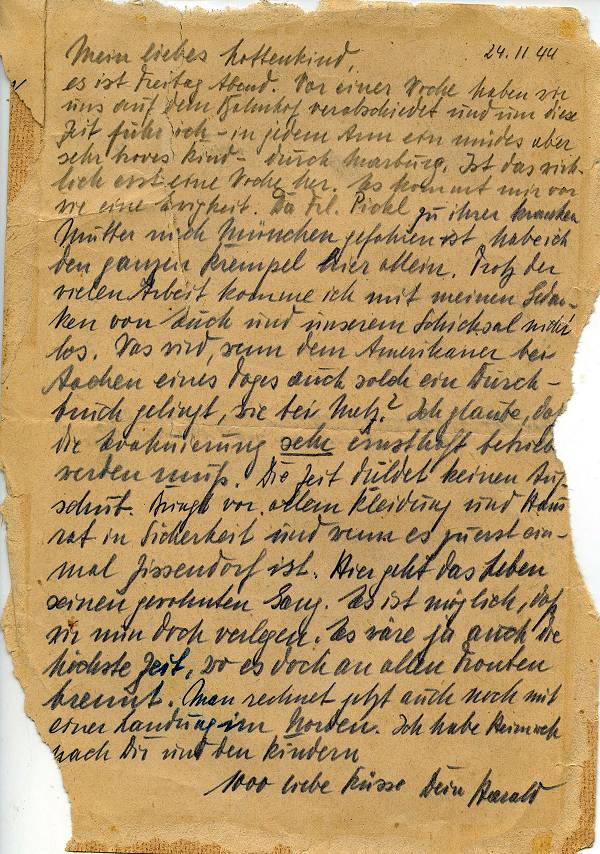 24.11.44
Mein liebes Lottenkind,
es ist Freitag Abend. Vor einer Woche haben wir
uns auf dem Bahnhof verabschiedet und um diese
Zeit fuhr ich - in jedem Arm ein müdes aber
sehr braves Kind - durch Marburg. Ist das wirk-
lich erst eine Woche her. Es kommt mir vor
wie eine Ewigkeit. Da Frl. Pickl zu ihrer kranken
Mutter nach München gefahren ist habe ich
den ganzen Krempel hier allein. Trotz der
vielen Arbeit komme ich mit meinen Gedan-
ken von Euch und unserem Schicksal nicht
los. Was wird, wenn dem Amerikaner bei
Aachen eines Tages auch solch ein Durch-
bruch gelingt, wie bei Metz? Ich glaube, daß
die Evakuierung sehr ernsthaft betrieb
werden muß. Die Zeit duldet keinen Auf-
schub. Bringt vor allem Kleidung und Haus
rat in Sicherheit und wenn es zuerst ein-
mal Zissendorf ist. Hier geht das Leben
seinen gewohnten Gang. Es ist möglich, daß
wir nun doch verlegen. Es wäre ja auch die
höchste Zeit, wo es doch an allen Fronten
brennt. Man rechnet jetzt auch noch mit
einer Landung im Norden. Ich habe Heimweh
nach Dir und den Kindern
1000 liebe Küsse Dein Harald